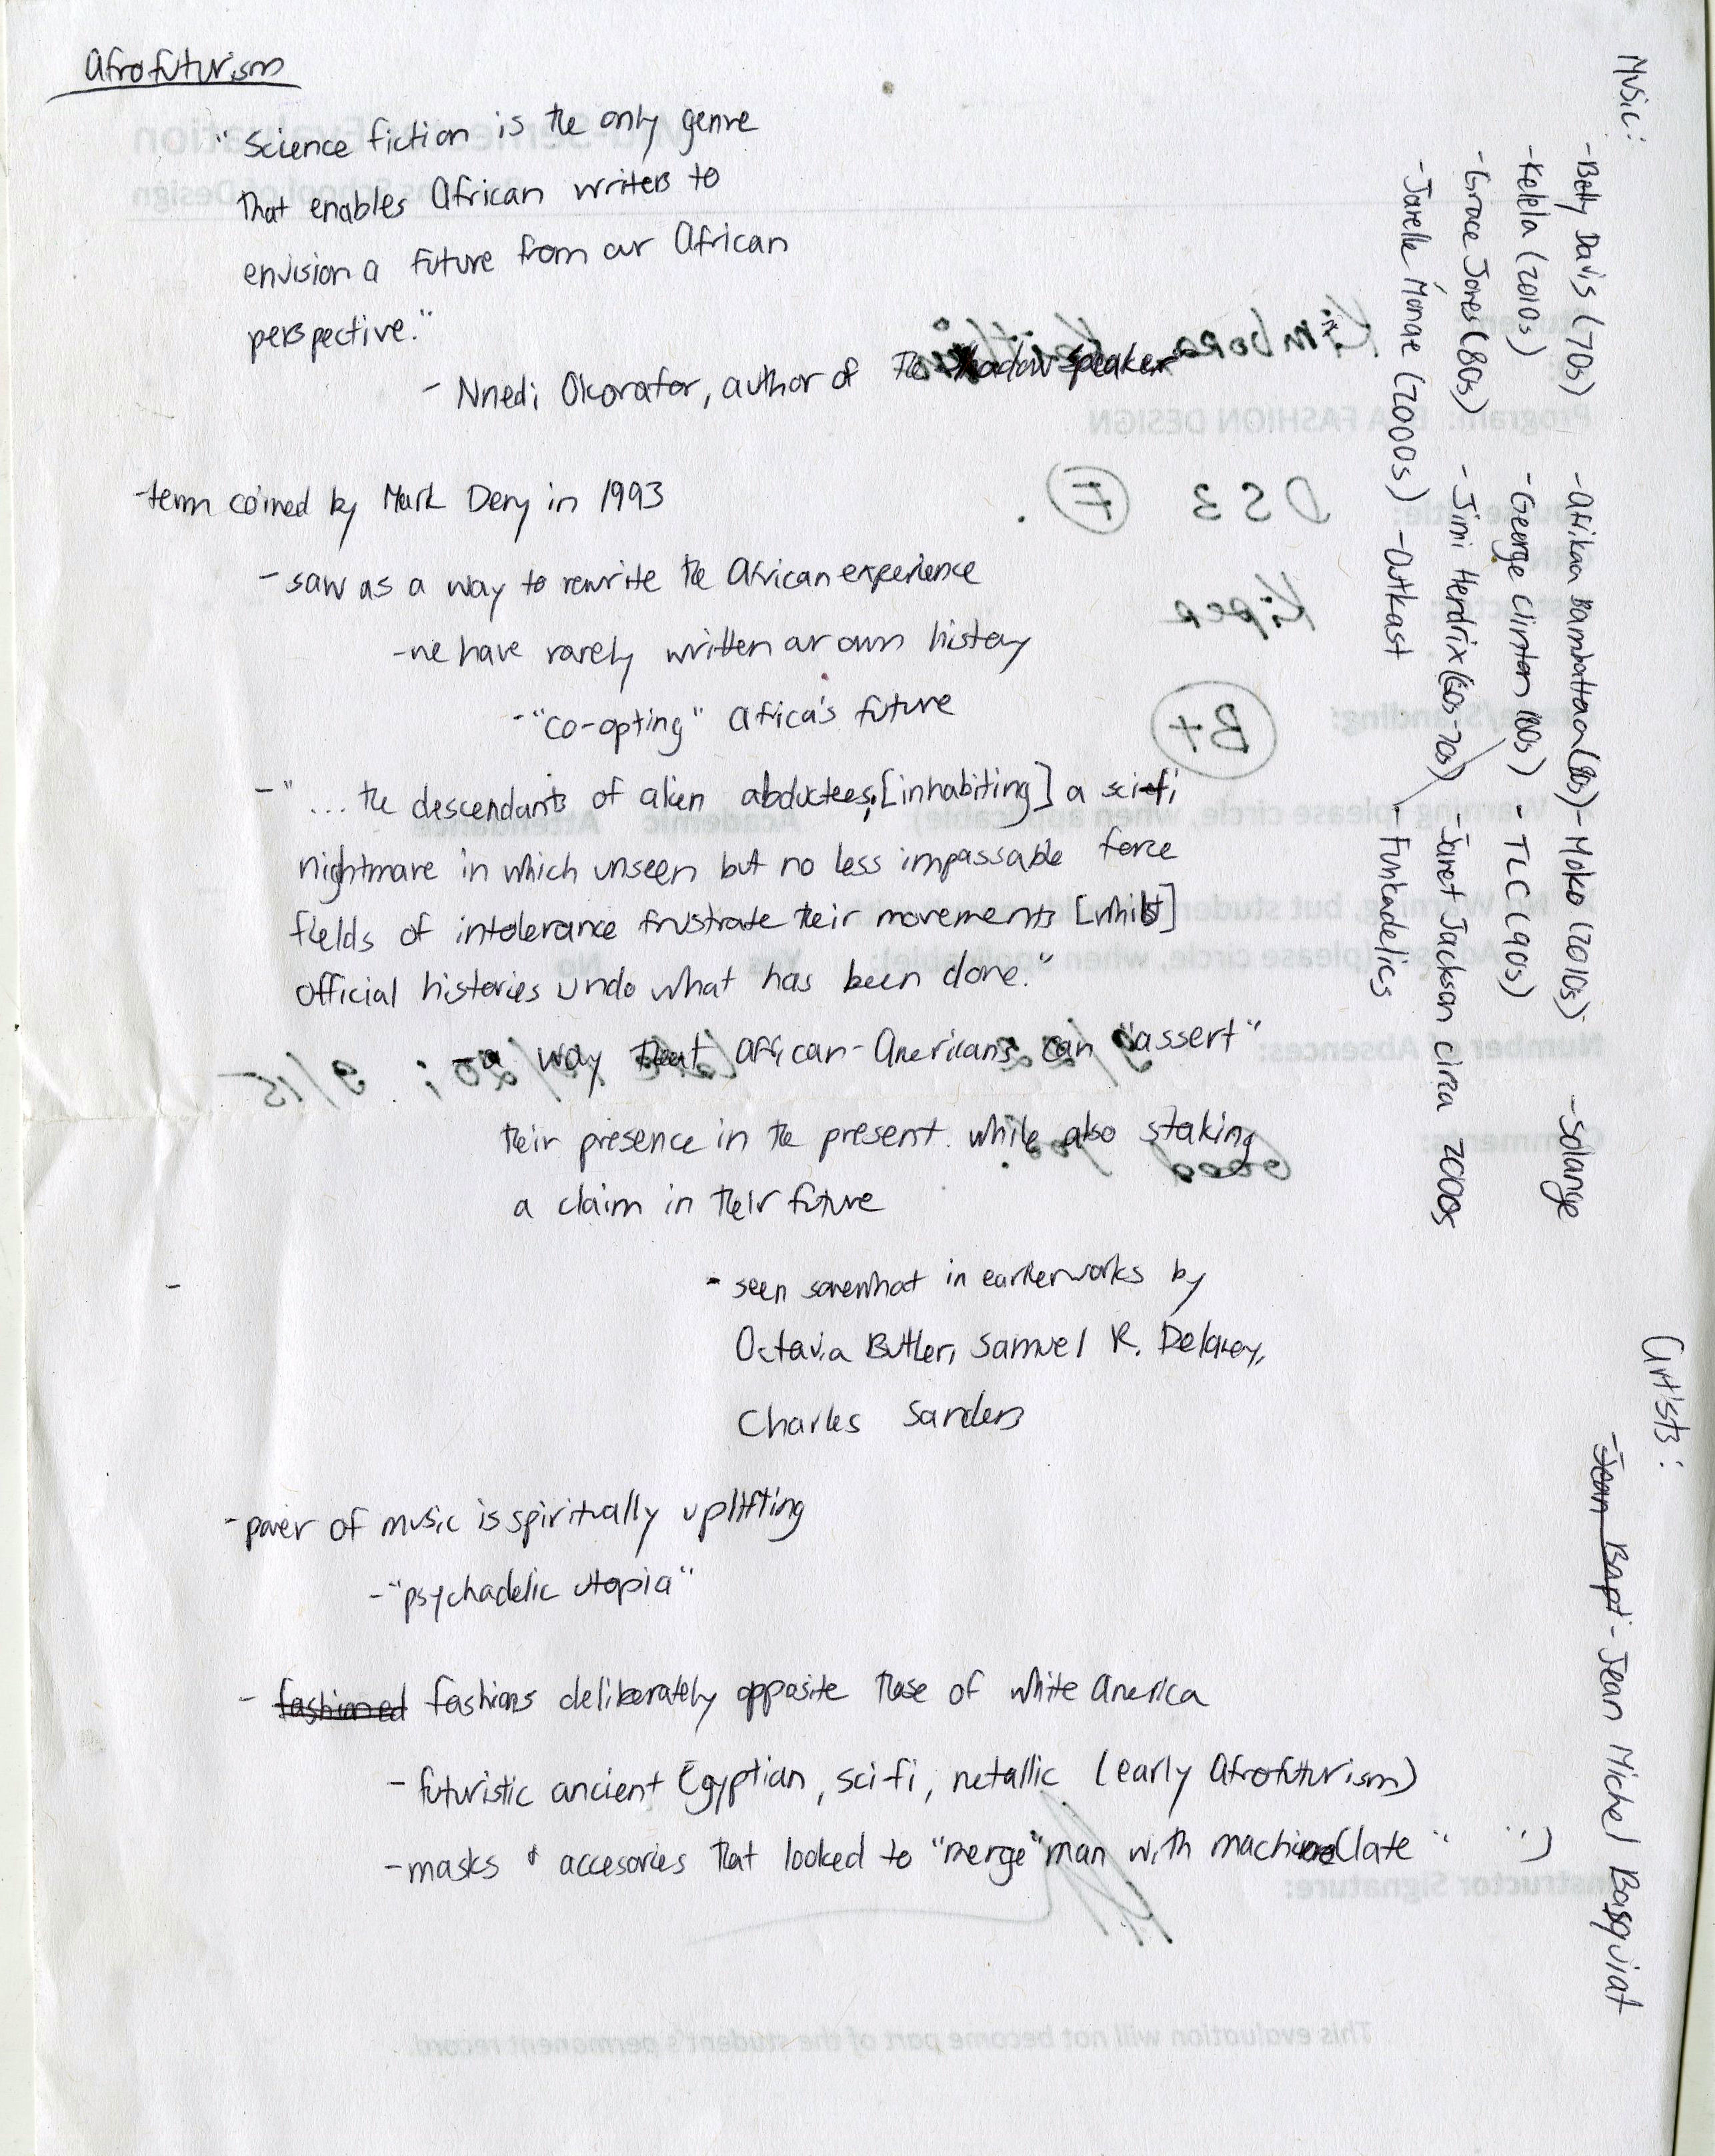 Afrofuturism
"Science fiction is the only genre
that enables African writers to
envision a future from our African
perspective."
- Nnedi Okorafor, author of The Shadow Speaker
-term coined by Mark Dery in 1993
- saw as a way to rewrite the African experience
-we have rarely written our own history
-"co-opting" Africa's future
- "... the descendants of alien abductees, [inhabiting] a sci-fi
nightmare in which unseen but no less impassable force
fields of intolerance frustrate their movements [whilst]
official histories undo what has been done."
-a way that African-Americans can "assert"
their presence in the present while also staking
a claim in their future
- seen somewhat in earlier works by
Octavia Butler, Samuel R. Delaney,
Charles Sanders
-
-power of music is spiritually uplifting
-"psychadelic utopia"
- fashioned fashions deliberately opposite those of white America
- futuristic ancient Egyptian, sci-fi, metallic (early Afrofuturism)
-masks & accesories that looked to "merge" man with machine (late " ")
Music:
-Betty Davis (70s) -Afrika Bambaataa (80s) -Moko (2010s) -Solange
-Kelela (2010s) -George Clinton (80s) -TLC (90s)
-Grace Jones (80s) -Jimi Hendrix (60s-70s) -Janet Jackson circa 2000s
-Janelle Monae (2000s) -Outkast -Funkadelics
Artists:
-Jean Bapt -Jean Michel Basquiat
Mid-Semester Evaluation
Parsons School of Design
Student
Kimbora
Program: BFA FASHION DESIGN
DS3 F
Kipen
Grade/Standing:
B+
Warning (please circle, when applicable) Academic Attendance
No Warning, but student
(please circle, when applicable): Yes No
Number of Absences:
9/15
Comments:
Good
Instructor Signature:
This evaluation will not become part of the student's permanent record.